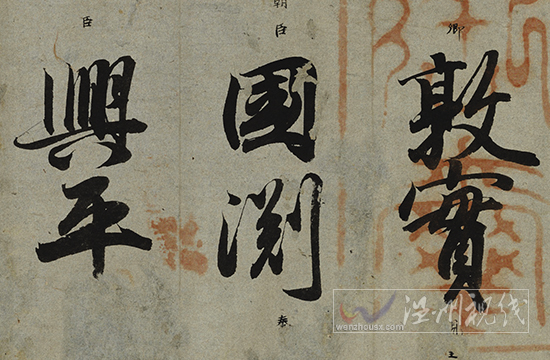 卿敦實
朝臣國淵奉
臣興平
温州视线
wenzhousx.com